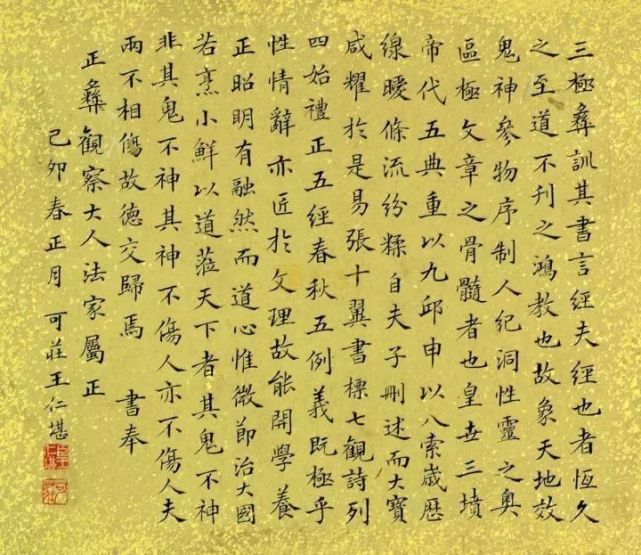 三極彝訓其書言經夫經也者恆久
之至道不刊之鴻教也故象天地效
鬼神參物序制人紀洞性靈之奧
區極文章之骨髓者也皇世三墳
帝代五典重以九邱申以八索歲歷
緜曖條流紛糅自夫子刪述而大寶
咸耀於是易張十翼書標七觀詩列
四始禮正五經春秋五例義既極乎
性情辭亦匠於文理故能開學養
正昭明有融然而道心惟微節治大國
若烹小鮮以道蒞天下者其鬼不神
非其鬼不神其神不傷人亦不傷人夫
兩不相傷故德交歸焉 書奉
正彝觀察大人法家屬正
己卯春正月可莊王仁堪